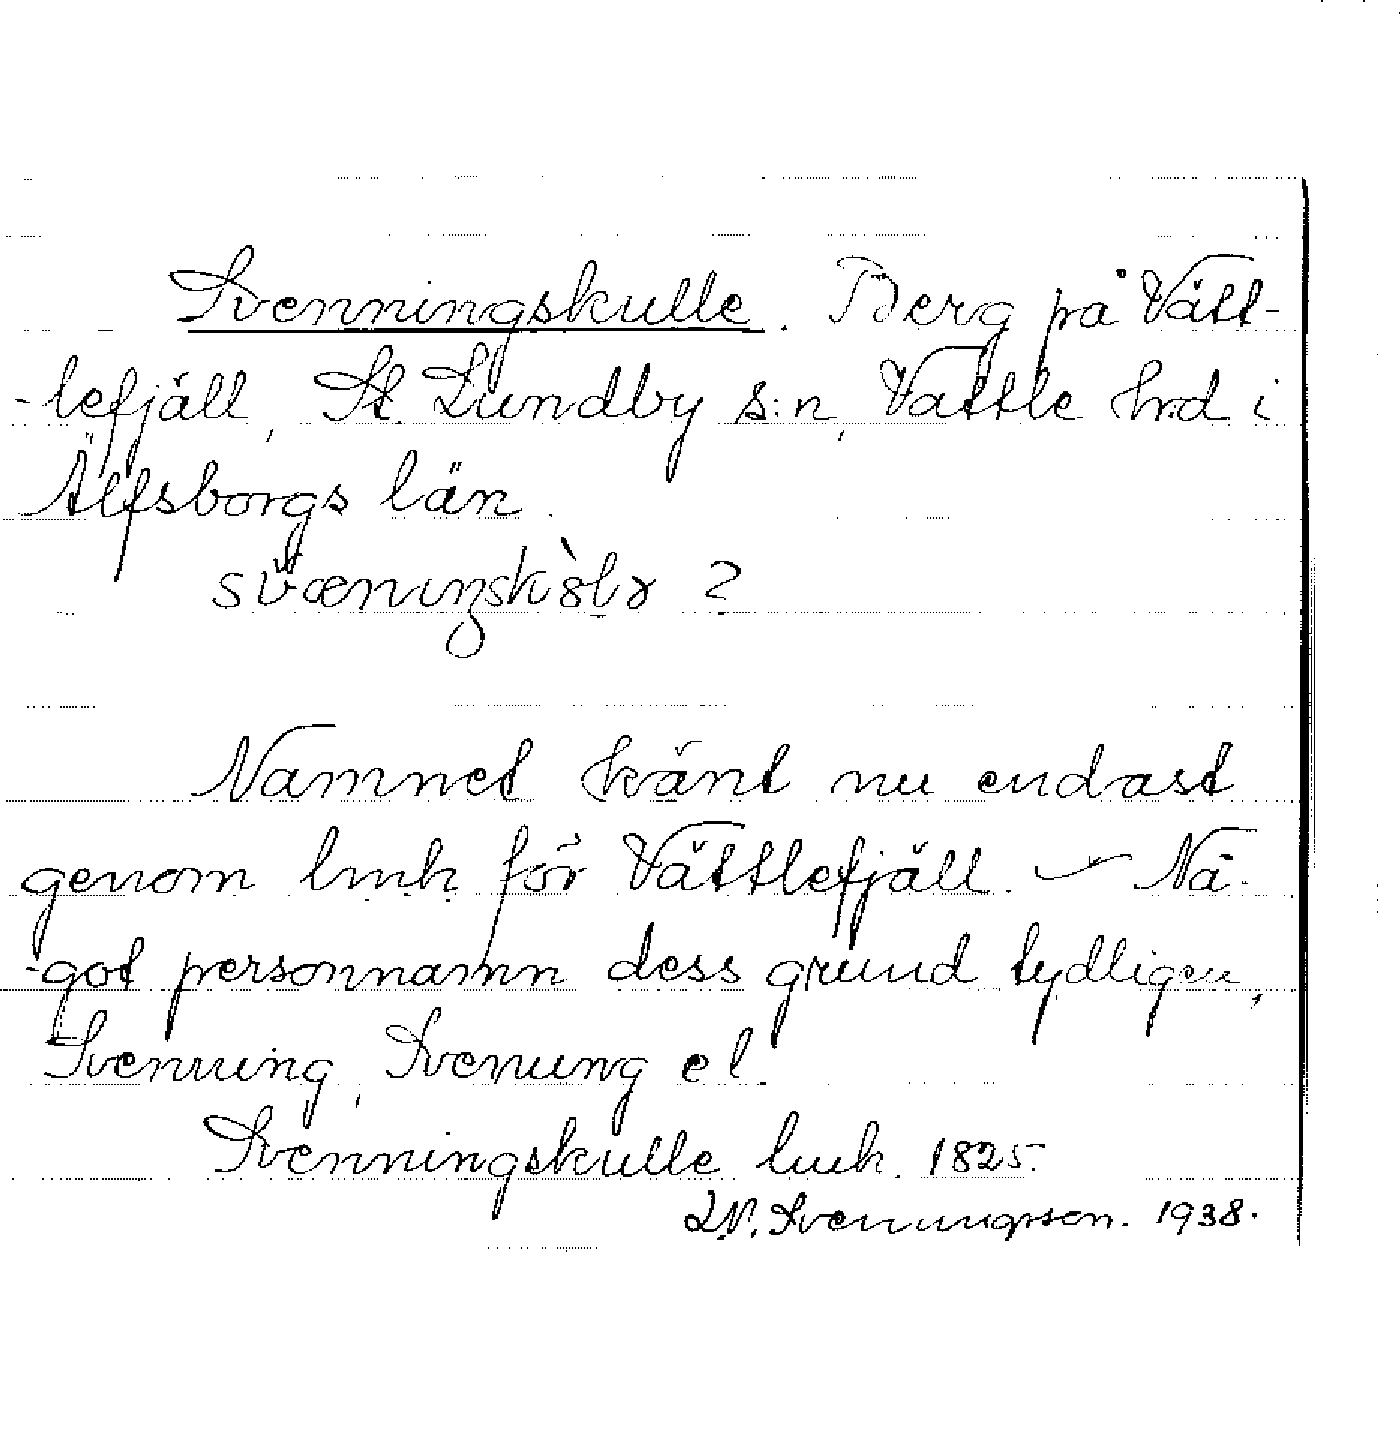 Svenningskulle. Berg på Vätt-
-lefjäll, St. Lundby s:n, Vättle hrd i
Älfsborgs län.
Namnet känt nu endast
genom lmh för Vättlefjäll. – Nå-
-got personnamn dess grund tydligen,
Svenning, Svenung el.
Svenningskulle lmh. 1825.
Svenungsson. 1938.